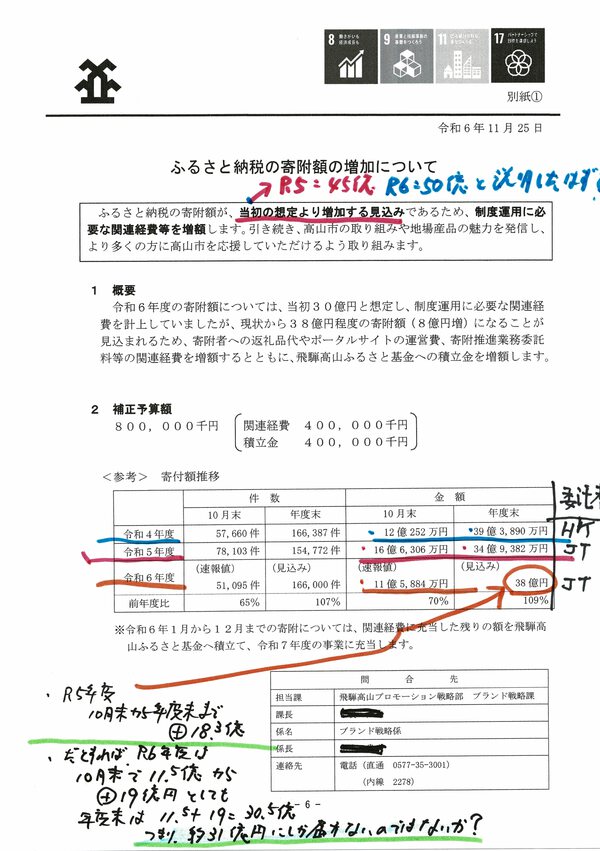 8 働きがいも 経済成長も
9 産業と技術革新の 基盤をつくろう
11 住み続けられる まちづくりを
17 パートナーシップで 目標を達成しよう
別紙①
令和6年11月25日
ふるさと納税の寄附額の増加について
R5=45億 R6=50億と説明したはず!
ふるさと納税の寄附額が、当初の想定より増加する見込みであるため、制度運用に必
要な関連経費等を増額します。引き続き、高山市の取り組みや地場産品の魅力を発信し、
より多くの方に高山市を応援していただけるよう取り組みます。
1 概要
令和6年度の寄附額については、当初30億円と想定し、制度運用に必要な関連経
費を計上していましたが、現状から38億円程度の寄附額(8億円増)になることが
見込まれるため、寄附者への返礼品代やポータルサイトの運営費、寄附推進業務委託
料等の関連経費を増額するとともに、飛騨高山ふるさと基金への積立金を増額します。
2 補正予算額
800,000千円 関連経費 400,000千円
積立金 400,000千円
<参考> 寄付額推移
件 数 金 額 委託
10月末 年度末 10月末 年度末
令和4年度 57,660件 166,387件 12億252万円 39億3,890万円
令和5年度 78,103件 154,772件 16億6,306万円 34億9,382万円 JT
令和6年度 (速報値) 51,095件 (見込み) 166,000件 (速報値) 11億5,884万円 (見込み) 38億円 JT
前年度比 65% 107% 70% 109%
※令和6年1月から12月までの寄附については、関連経費に充当した残りの額を飛騨高
山ふるさと基金へ積立て、令和7年度の事業に充当します。
問 合 先
担当課 飛騨高山プロモーション戦略部 ブランド戦略課
課長
係名 ブランド戦略係
係長
連絡先 電話(直通 0577-35-3001)
(内線 2278)
・R5年度
10月末から年度末まで
⊕18.3億
・だとすれば、R6年度は
10月末で11.5億から
⊕19億円としても
年度末は 11.5+19=30.5億
つまり、約31億円にしか届かないのではないか?
- 6 -